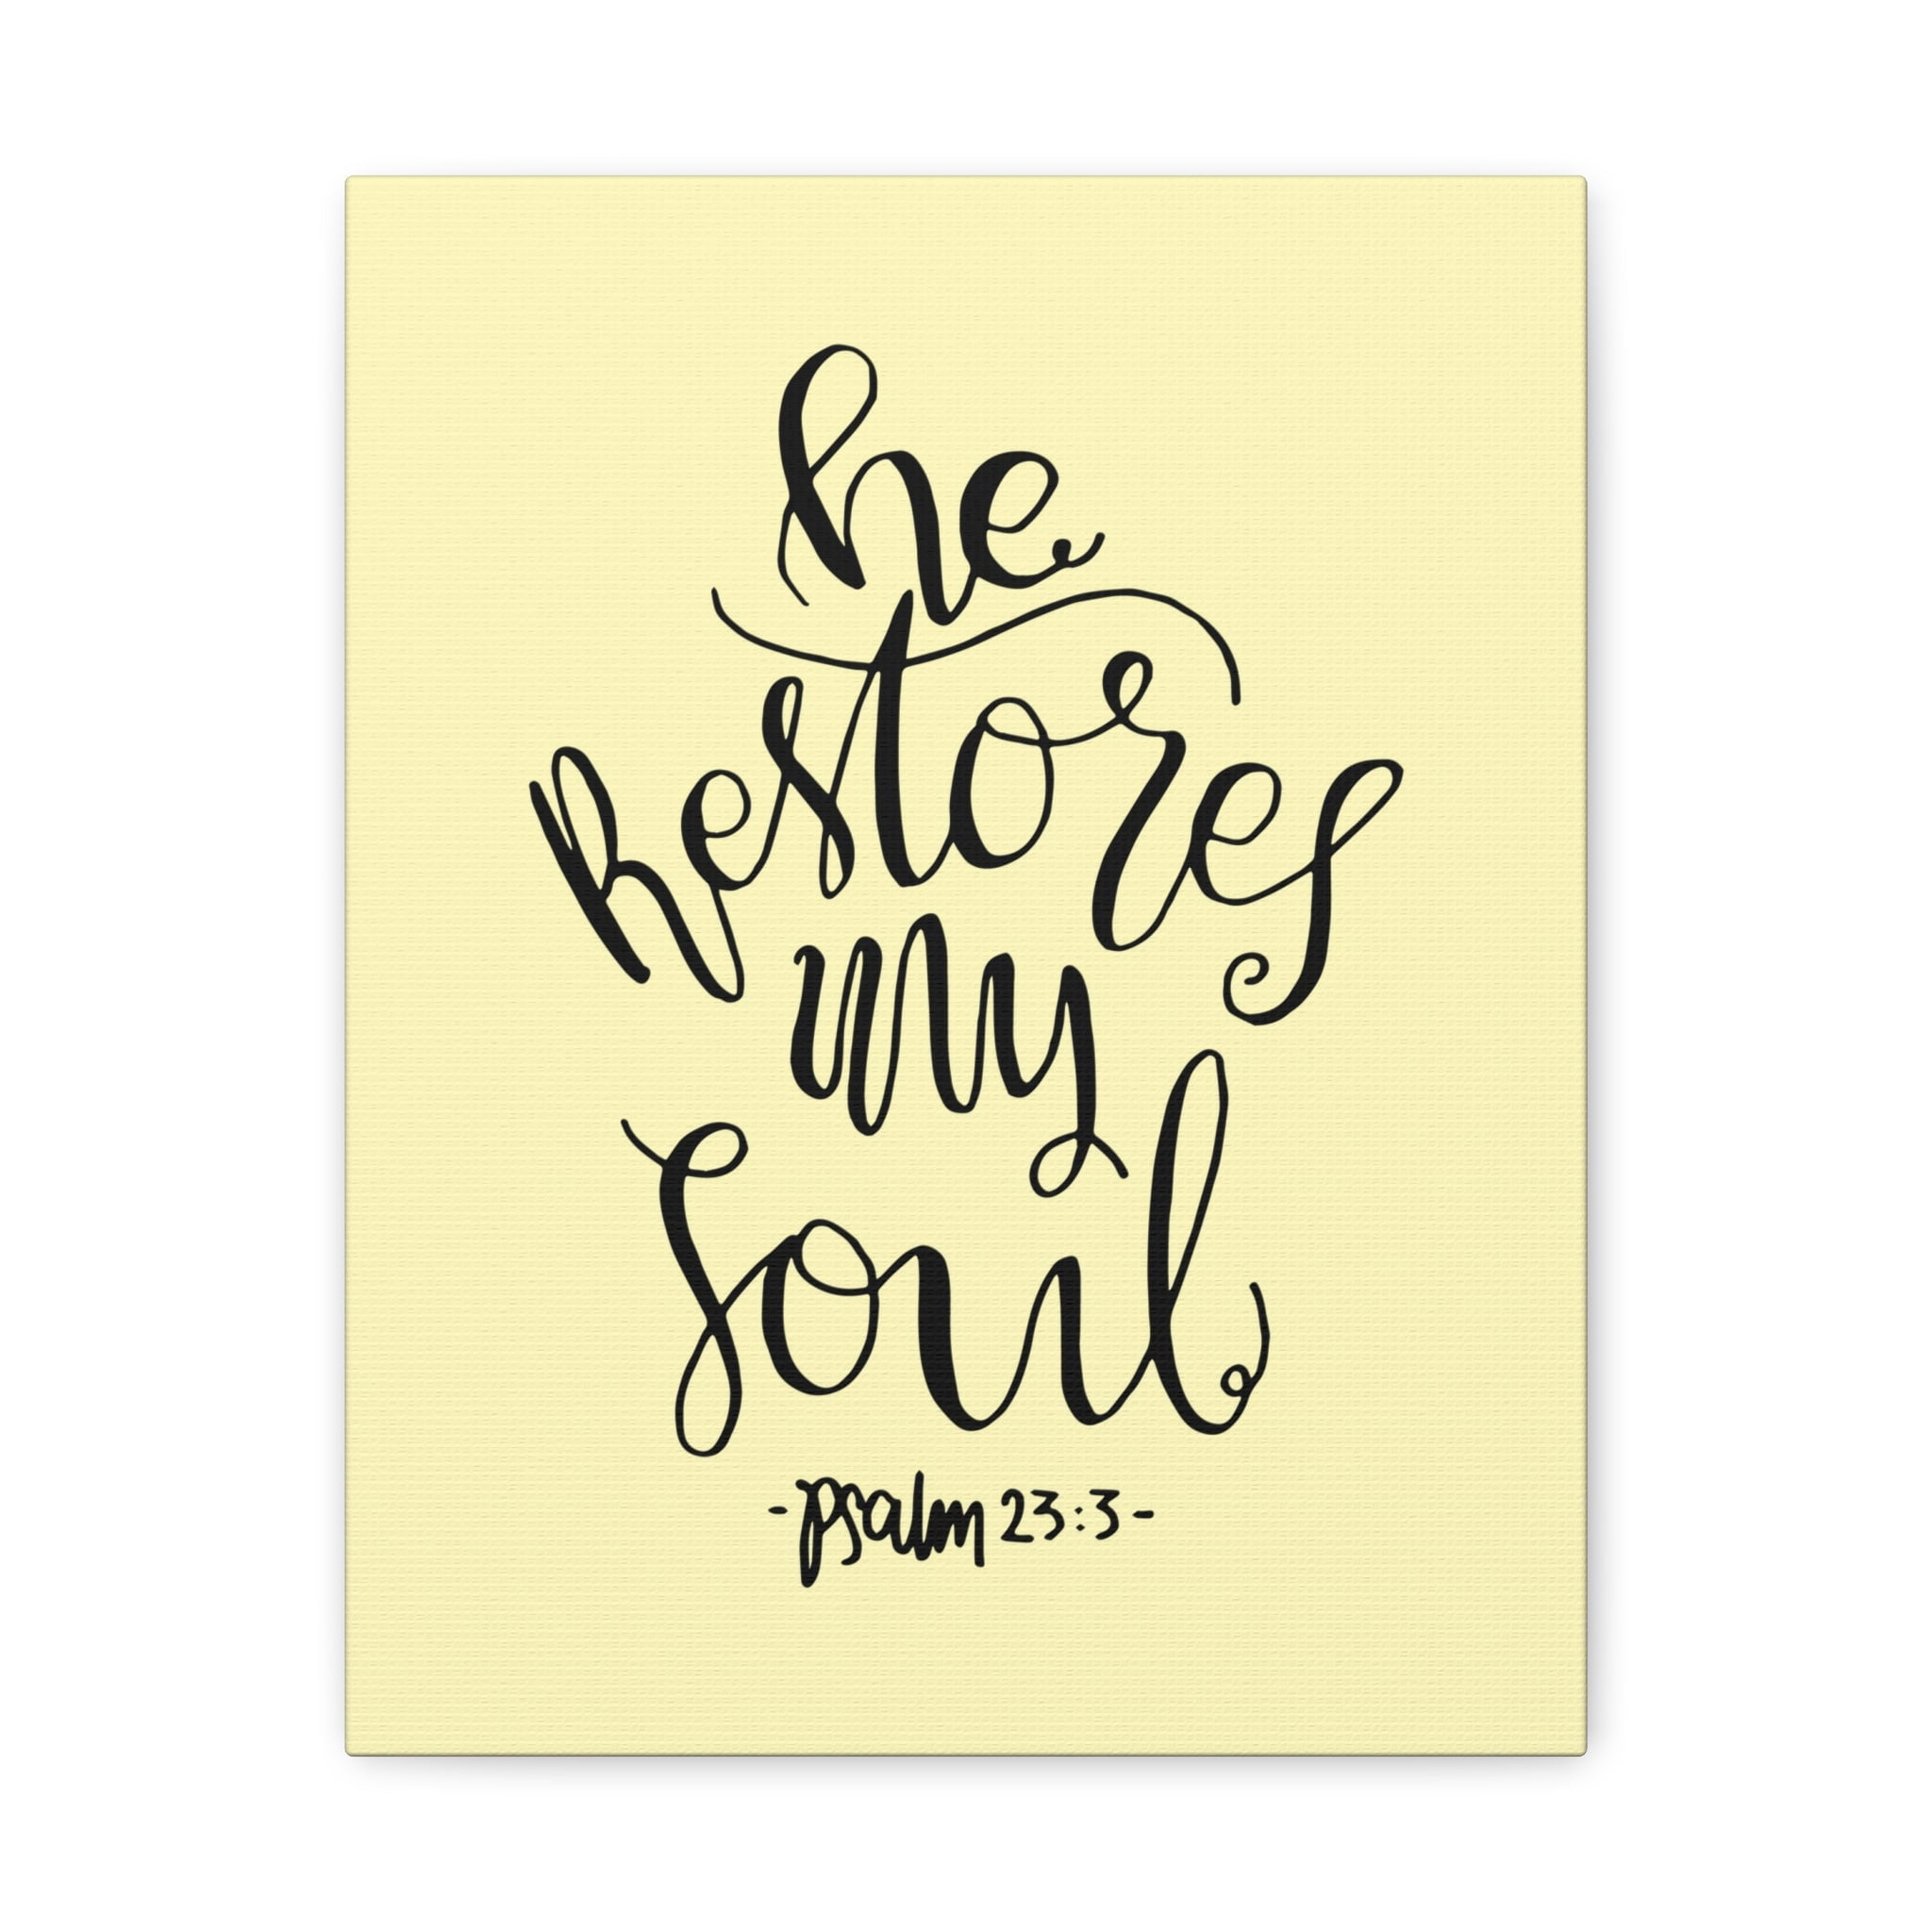 he
Restores
my
soul
-psalm 23:3-